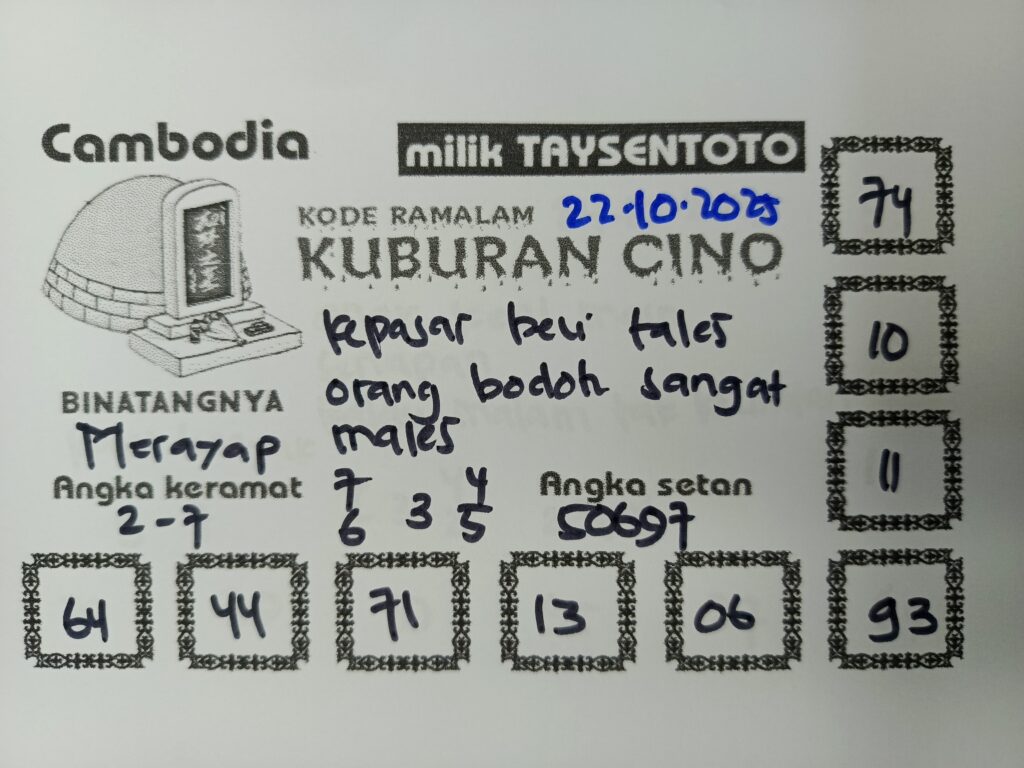 Cambodia
milik TAYSENTOTO
KODE RAMALAM 22.10.2025
KUBURAN CINO
kepasar beli tales
orang bodoh sangat
males
BINATANGNYA
Merayap
Angka keramat
2-7
7 4
3
6 5
Angka setan
50697
74
10
11
64 44 71 13 06 93